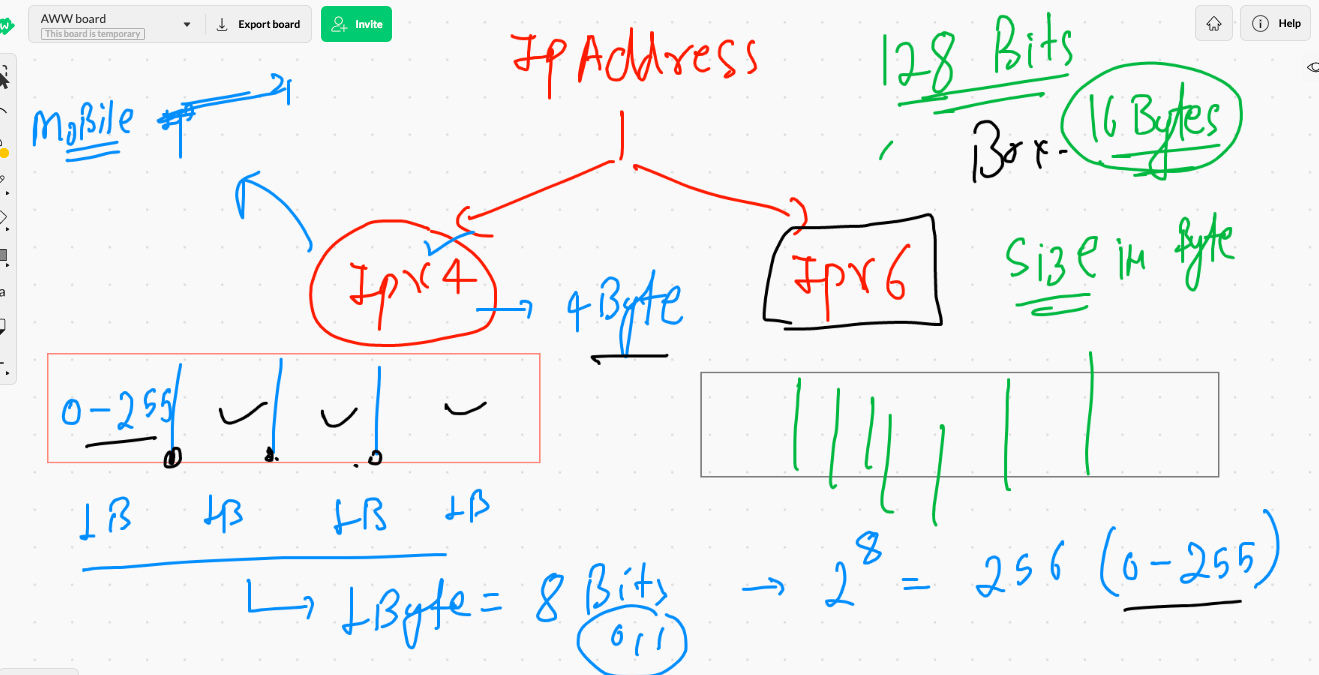 AWW board
This board is temporary
Export board
Invite
Help
Ip Address
128 Bits
16 Bytes
Box
MoBile
Ipv4
4 Byte
Ipv6
Size in Byte
0-255
1B 1B 1B 1B
1Byte = 8 Bits → 2^8 = 256 (0-255)
0,1